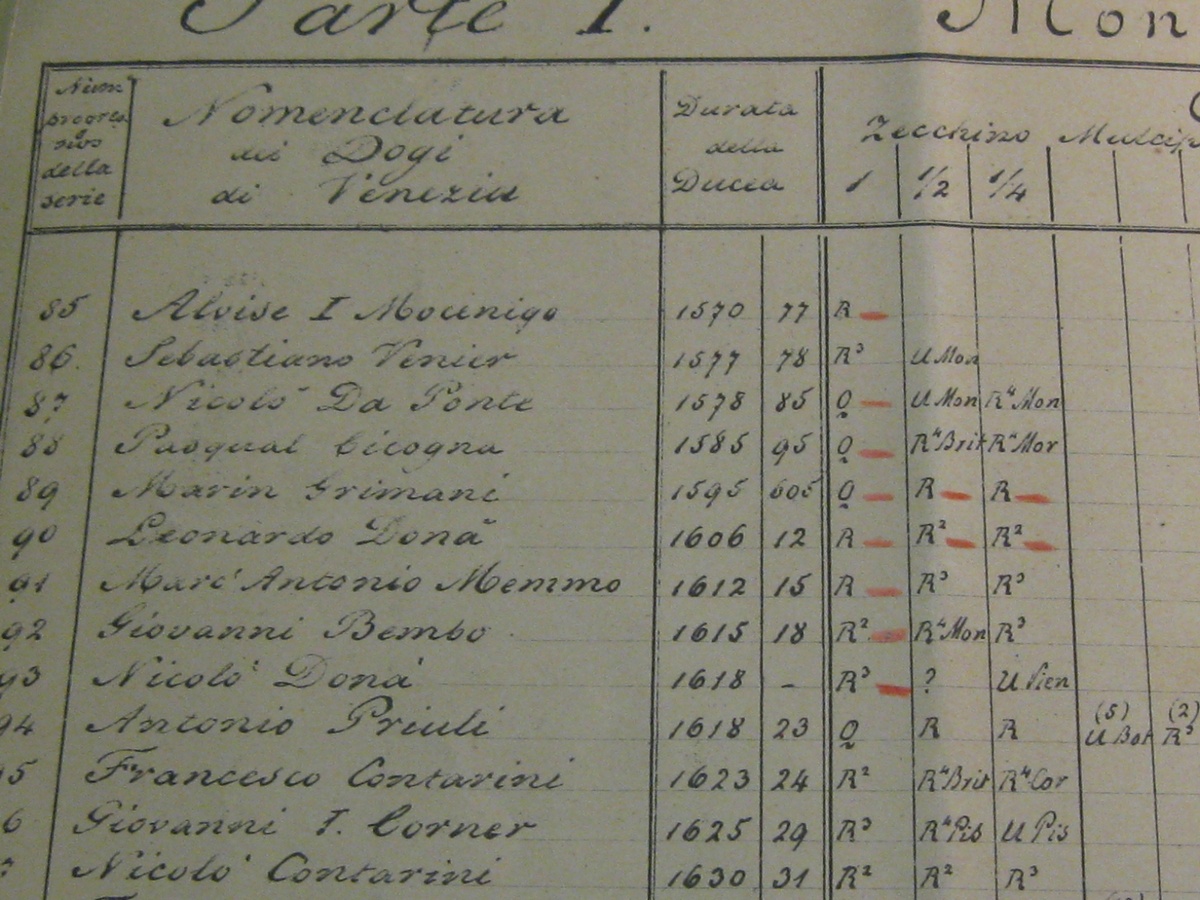 Parte I. Mon
Num° progressivo della serie
Nomenclatura dei Dogi di Venezia
Durata della Ducea
Zecchino Multip
1 1/2 1/4
85 Alvise I Mocinigo 1570 77 R
86. Sebastiano Venier 1577 78 R³ U Mon
87 Nicolò Da Ponte 1578 85 Q U Mon R⁴ Mon
88 Pasqual Cicogna 1585 95 Q R⁴ Brit R⁴ Mor
89 Marin Grimani 1595 605 Q R R
90 Leonardo Donà 1606 12 R R² R²
91 Marc' Antonio Memmo 1612 15 R R³ R³
92 Giovanni Bembo 1615 18 R² R⁴ Mon R³
93 Nicolò Donà 1618 - R³ ? U Vien
94 Antonio Priuli 1618 23 Q R R (5) U Bot (2) R³
5 Francesco Contarini 1623 24 R² R⁴ Brit R⁴ Cor
6 Giovanni I. Corner 1625 29 R³ R⁴ Pis U Pis
7 Nicolò Contarini 1630 31 R² R² R³